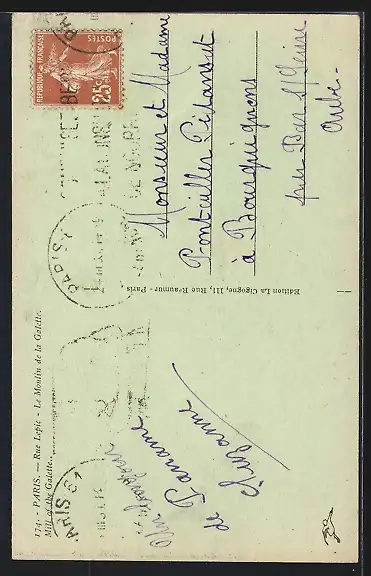 174. - PARIS. — Rue Lepic - Le Moulin de la Galette.
Mill of the Galette.
Un bonjour
de Paname
Suzanne
Edition La Cigogne, 111, Rue Réaumur - Paris
RÉPUBLIQUE FRANÇAISE
POSTES
25c
PARIS
PARIS
Monsieur et Madame
Pontailler
à Bourguignons
près Bar s/Seine
Aube-